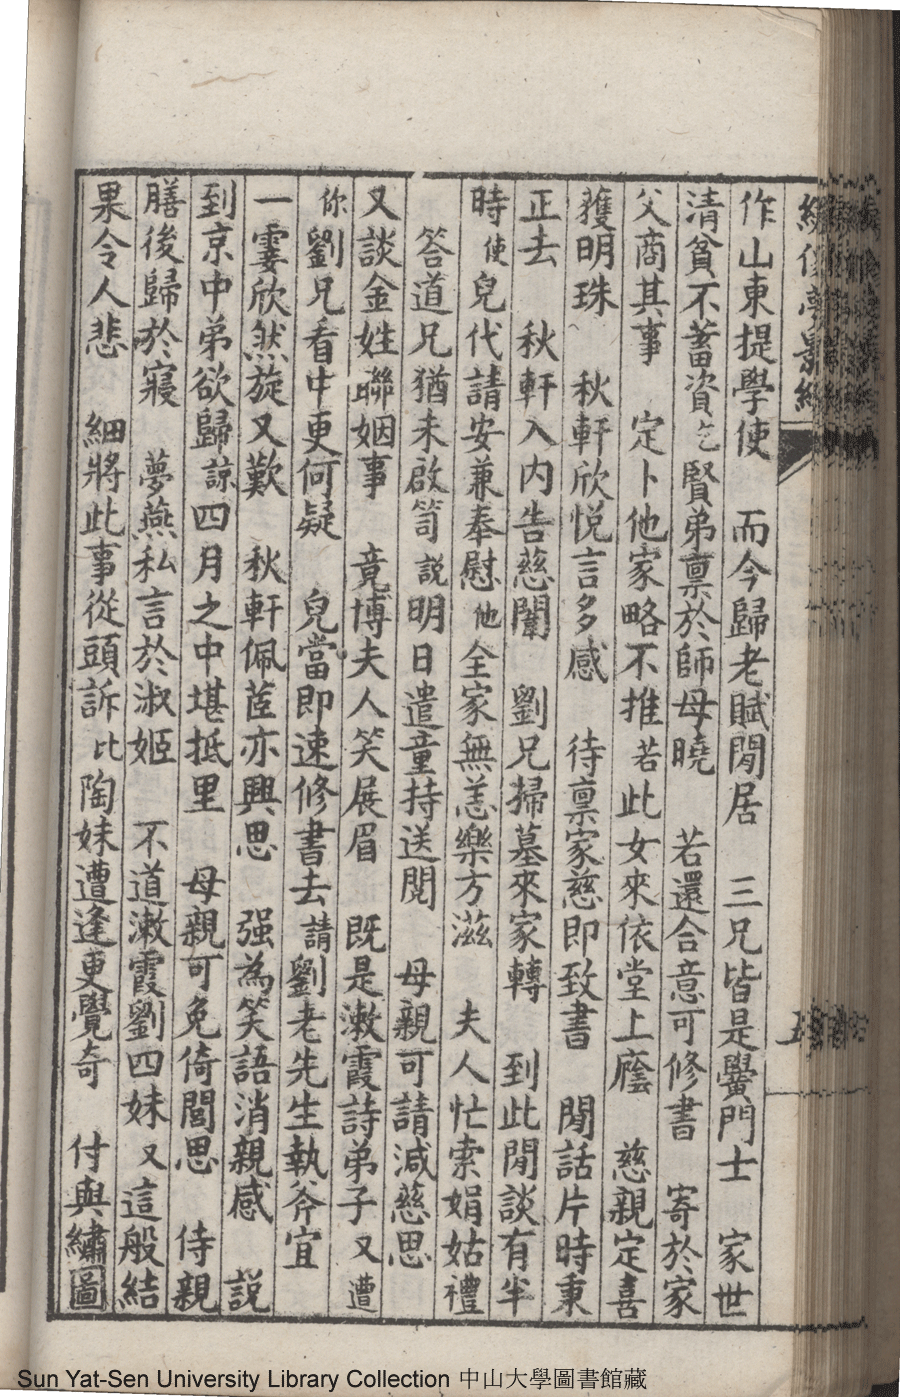 作山東提學使　而今歸老賦閒居　三兄皆是黌門士　家世
清貧不蓄資乞賢弟禀於師母曉　若還合意可修書　寄於家
父商其事　定卜他家略不推若此女來依堂上廕　慈親定喜
獲明珠　秋軒欣悅言多感　待禀家慈即致書　閒話片時東
正去　秋軒入內告慈闈　劉兄掃墓來家轉　到此閒談有半
時使兒代請安兼奉慰他全家無恙樂方滋　夫人忙索娟姑禮
答道兄猶未啟笥說明日遣童持送閱　母親可請減慈思
又談金姓聯姻事　竟博夫人笑展眉　既是漱霞詩弟子又遭
你劉兄看中更何疑　兒當即速修書去請劉老先生執斧宜
一霎欣然旋又歎　秋軒佩茝亦興思　强為笑語消親感　説
到京中弟欲歸諒四月之中堪抵里　母親可免倚閭思　侍親
膳後歸於寢　夢燕私言於淑姬　不道漱霞劉四妹又這般結
果令人悲　細將此事從頭訴比陶妹遭逢更覺奇　付與繡圖
Sun Yat-Sen University Library Collection 中山大學圖書館藏